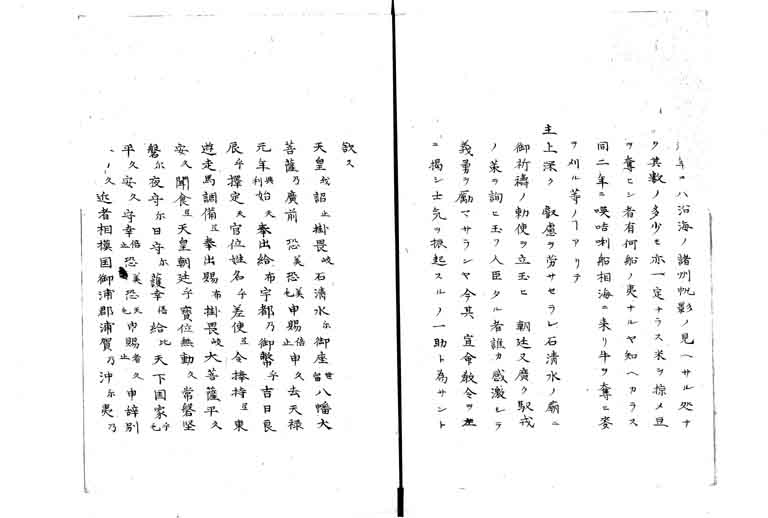 年ハ沿海ノ諸州帆影ノ見ヘサル処ナ
ク其数ノ多少モ亦一定ナラス米ヲ掠メ豆
ヲ奪ヒシ者有何船ノ夷ナルヤ知ヘカラス
同二年ニ暎咭唎船相海ニ来リ牛ヲ奪ニ麥
ヲ刈ル等ノヿアリテ
主上深ク 叡慮ヲ労サセラレ石清水ノ廟ニ
御祈禱ノ勅使ヲ立玉ヒ 朝廷又廣ク馭戎
ノ策ヲ詢ヒ玉フ人臣タル者誰カ感激シテ
義勇ヲ励マサランヤ今其 宣命敕令ヲ
ニ揭シ士気ヲ振起スルノ一助ト為サント
欲ス
天皇我詔止掛畏岐石清水尓御座世留八幡大
菩薩乃廣前 恐美恐美毛申賜倍止申久去天禄
元年利始天奉出給布宇都乃御幣乎吉日良
辰乎擇定天官位姓名乎差使旦令捧持旦東
遊走馬調備旦奉出賜布掛畏岐大菩薩平久
安久聞食旦天皇朝廷乎寶位無動久常磐堅
磐尓夜守尓日守尓護幸倍給比天下国家乎毛
平久安久守幸倍止恐美恐毛申賜者久止申辞別
久近者相模国御浦郡浦賀乃沖尓夷乃